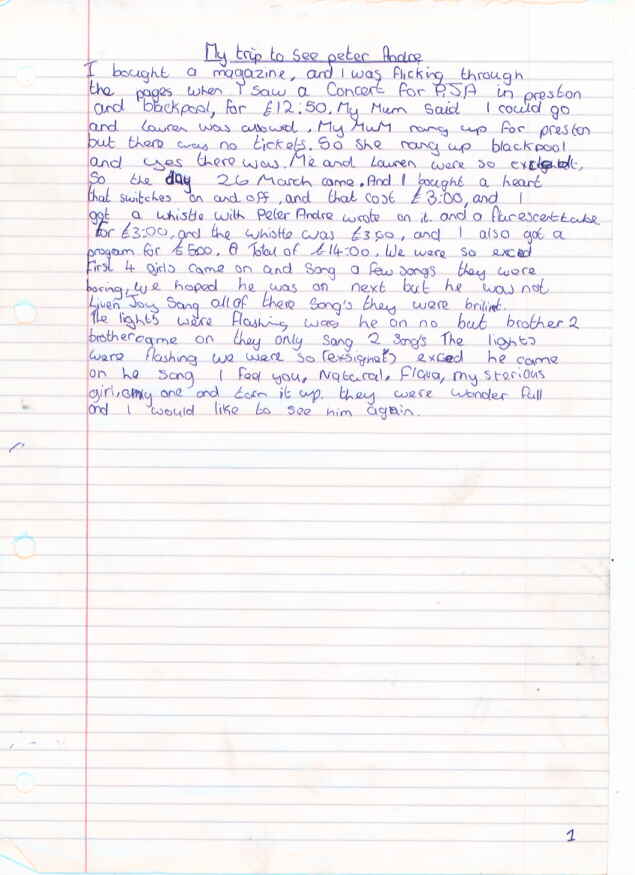 My trip to see peter Andre
I bought a magazine, and I was flicking through
the pages when I saw a Concert for P.J.A in preston
and blackpool, for £12.50. My Mum said I could go
and Lauren was allowed. My MuM rang up for preston
but there was no tickets. So she rang up blackpool
and yes there was. Me and Lauren were so
So the day 26 March came. And I bought a heart
that switches on and off, and that cost £3:00, and I
got a whistle with Peter Andre wrote on it. and a
for £3:00, and the whistle was £3:00, and I also got a
program for £5:00. A Total of £14:00. We were so exced
First 4 girls came on and Sang a few songs they were
boring, we hoped he was on next but he was not
Given Joy Sang all of there Song's they were brilint.
The lights were flashing was he on no but brother 2
brother came on they only sang 2 Song's The lights
were flashing we were so exced he came
on he sang I feel you, Natural, Flava, mysterious
girl, only one and turn it up. they were wonder full
and I would like to see him again.
1